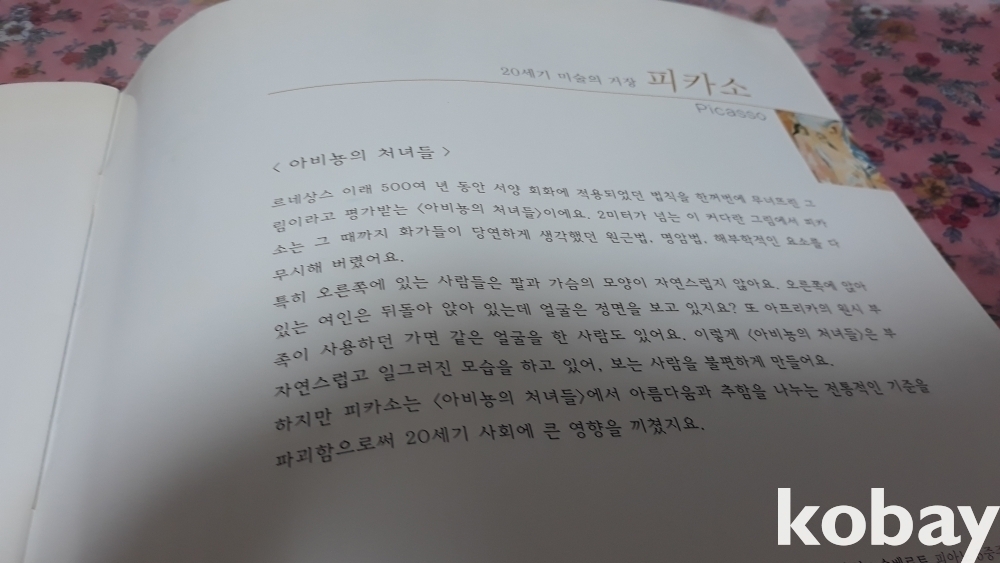 20세기 미술의 거장 피카소
Picasso
< 아비뇽의 처녀들 >
르네상스 이래 500여 년 동안 서양 회화에 적용되었던 법칙을 한꺼번에 무너뜨린 그
림이라고 평가받는 〈아비뇽의 처녀들〉이에요. 2미터가 넘는 이 커다란 그림에서 피카
소는 그 때까지 화가들이 당연하게 생각했던 원근법, 명암법, 해부학적인 요소를 다
무시해 버렸어요.
특히 오른쪽에 있는 사람들은 팔과 가슴의 모양이 자연스럽지 않아요. 오른쪽에 앉아
있는 여인은 뒤돌아 앉아 있는데 얼굴은 정면을 보고 있지요? 또 아프리카의 원시 부
족이 사용하던 가면 같은 얼굴을 한 사람도 있어요. 이렇게 〈아비뇽의 처녀들〉은 부
자연스럽고 일그러진 모습을 하고 있어, 보는 사람을 불편하게 만들어요.
하지만 피카소는 〈아비뇽의 처녀들〉에서 아름다움과 추함을 나누는 전통적인 기준을
파괴함으로써 20세기 사회에 큰 영향을 끼쳤지요.
kobay